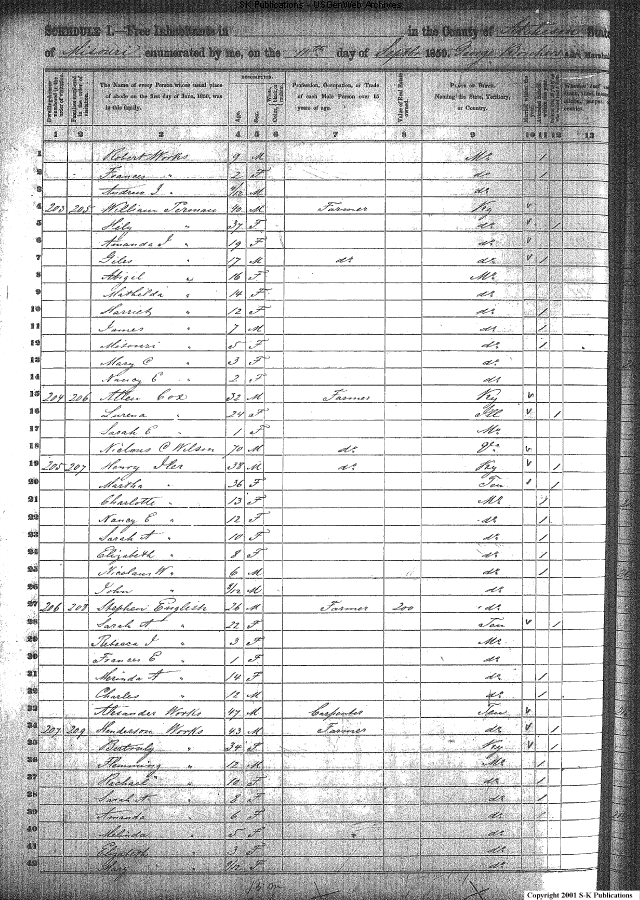 S-K Publications - USGenWeb Archives
SCHEDULE I.—Free Inhabitants in in the County of State
of Missouri enumerated by me, on the day of Sept 1850. George Ass't Marshal
DESCRIPTION.
The Name of every Person whose usual place of abode on the first day of June, 1850, was in this family.
Age. Sex.
Profession, Occupation, or Trade of each Male Person over 15 years of age.
Value of Real Estate owned.
PLACE OF BIRTH. Naming the State, Territory, or Country.
1 2 3 4 5 6 7 8 9 10 11 12 13
1 Robert Works 9 M Mo 1
2 Frances " 2 F do 1
3 Andrew J " /12 M do
4 203 205 William 40 M Farmer Ky
5 " 37 F do 1
6 Amanda J " 19 F do
7 Giles " 17 M do do 1
8 Abigel " 16 F Mo
9 Mathilda " 14 F do
10 Harriet " 12 F do 1
11 James " 7 M do 1
12 Missouri " 5 F do 1
13 Mary C " 3 F do
14 Nancy E " 2 F do
15 204 206 Allen Cox 32 M Farmer Ky
16 Lurena " 24 F Ill 1
17 Sarah E " 1 F Mo
18 C Wilson 70 M do
19 205 207 Henry Iler 38 M do Ky 1
20 Martha " 36 F Ten 1
21 Charlotte " 13 F Mo 1
22 Nancy E " 12 F do 1
23 Sarah A " 10 F do 1
24 Elizabeth " 8 F do 1
25 Nicolaus W " 6 M do 1
26 John " /12 M do
27 206 208 Stephen English 26 M Farmer 200 do
28 Sarah A " 22 F Ten 1
29 Rebecca J " 3 F Mo
30 Frances E " 1 F do
31 Merinda A " 14 F do 1
32 Charles " 12 M do 1
33 Alexander Works 47 M Carpenter Ten
34 207 209 Henderson Works 43 M Farmer do 1
35 " 34 F Ky 1
36 Flemming " 12 M Mo 1
37 Rachael " 10 F do 1
38 Sarah A " 8 F do 1
39 Amanda " 6 F do 1
40 Melinda " 5 F do
41 Elizabeth " 3 F do
42 Mary " /12 F do
Copyright 2001 S-K Publications